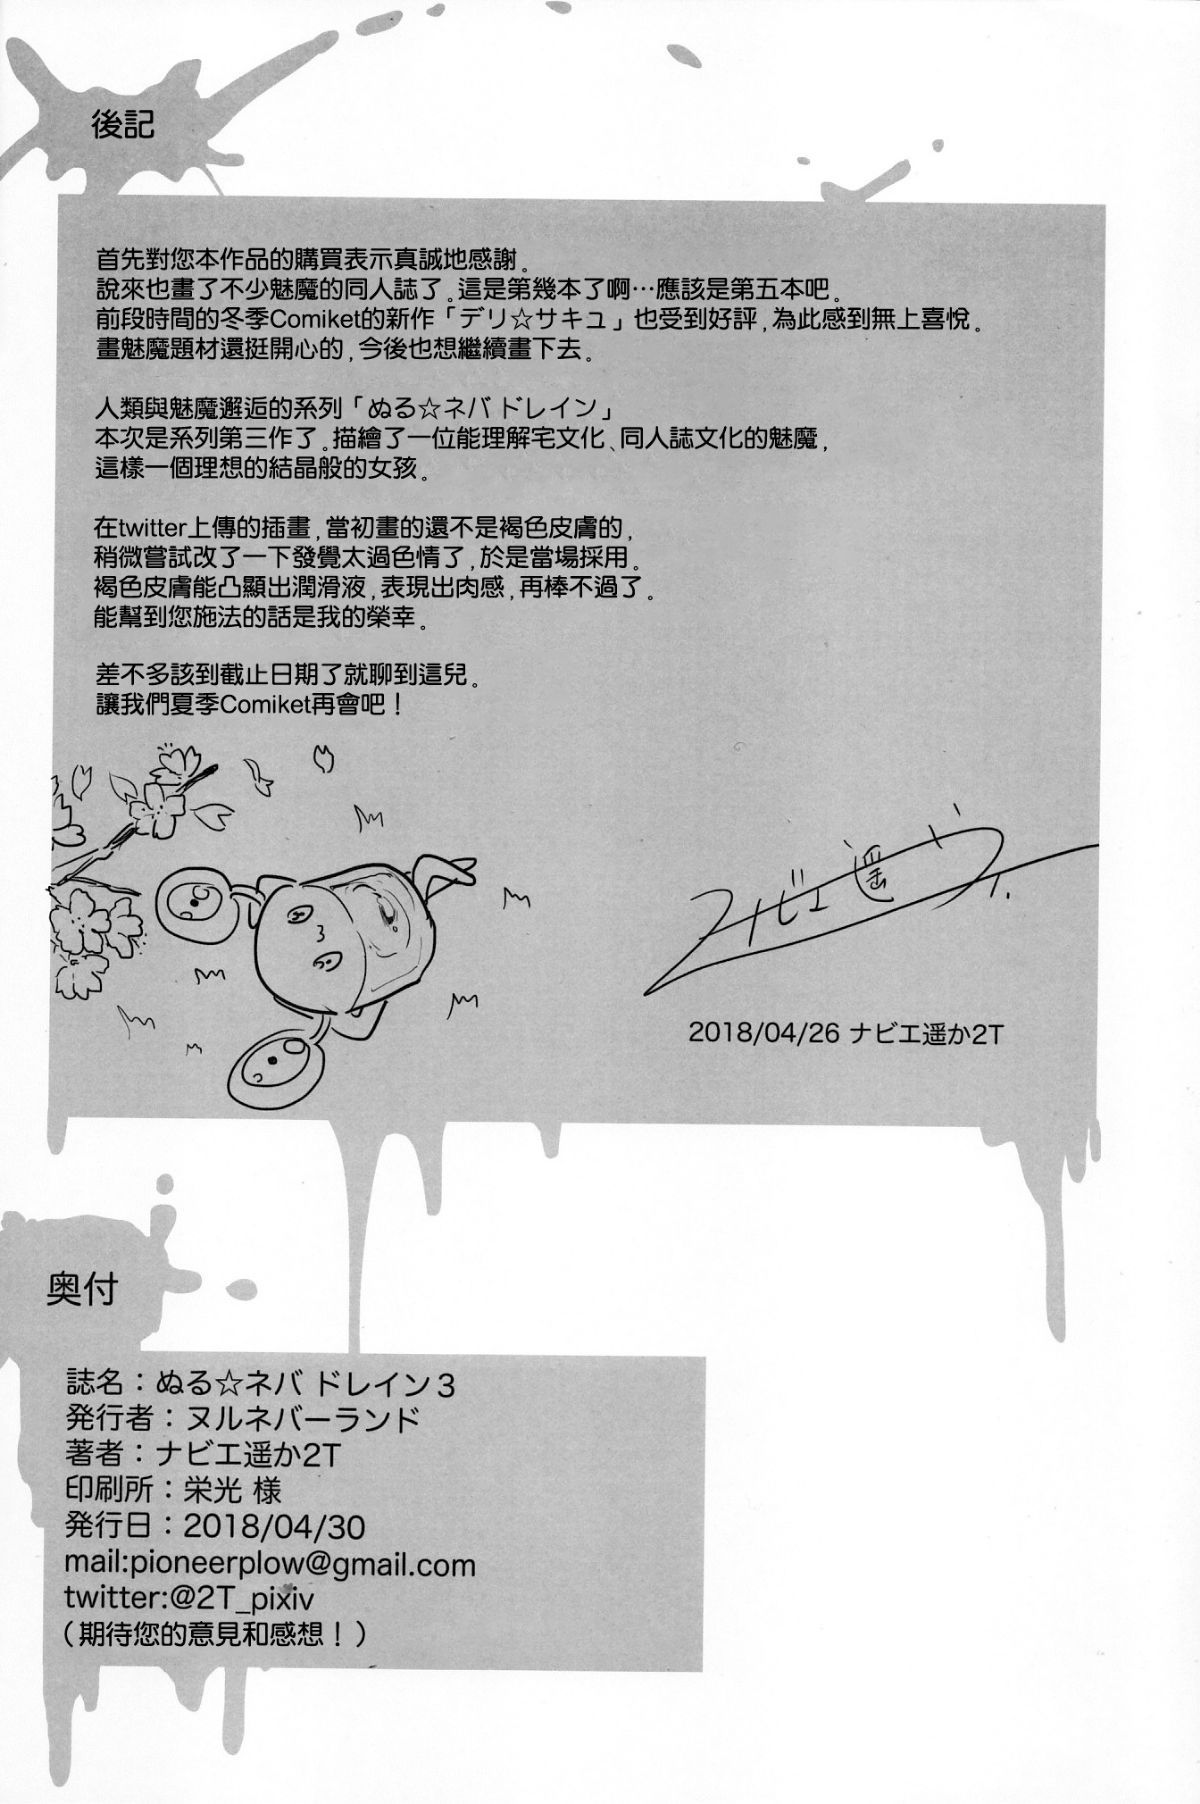 後記
首先對您本作品的購買表示真誠地感謝。
說來也畫了不少魅魔的同人誌了。這是第幾本了啊…應該是第五本吧。
前段時間的冬季Comiket的新作「デリ☆サキュ」也受到好評,為此感到無上喜悅。
畫魅魔題材還挺開心的,今後也想繼續畫下去。
人類與魅魔邂逅的系列「ぬる☆ネバ ドレイン」
本次是系列第三作了。描繪了一位能理解宅文化、同人誌文化的魅魔,
這樣一個理想的結晶般的女孩。
在twitter上傳的插畫,當初畫的還不是褐色皮膚的,
稍微嘗試改了一下發覺太過色情了,於是當場採用。
褐色皮膚能凸顯出潤滑液,表現出肉感,再棒不過了。
能幫到您施法的話是我的榮幸。
差不多該到截止日期了就聊到這兒。
讓我們夏季Comiket再會吧！
ナビエ遥か2T
2018/04/26 ナビエ遥か2T
奥付
誌名：ぬる☆ネバ ドレイン３
発行者：ヌルネバーランド
著者：ナビエ遥か2T
印刷所：栄光 様
発行日：2018/04/30
mail:pioneerplow@gmail.com
twitter:@2T_pixiv
（期待您的意見和感想！）